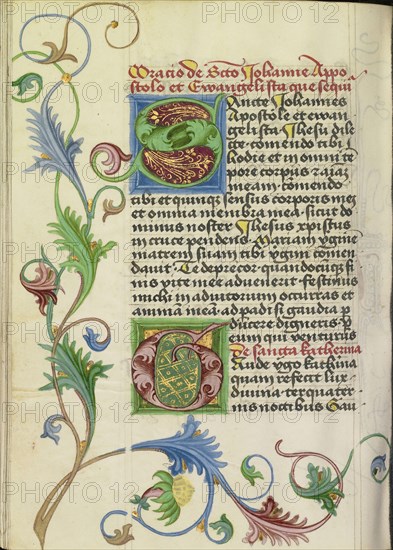 Oracio de Scto Johanne Appo
stolo et Ewangelista que sequi
Sancte Johannes
Apostole et ewan
gelista Jhesu dile
cte comendo tibi
hodie et in omni te
pore corpus
meam comendo
tibi et quinque sensus corporis mei
et omnia membra mea sicut do
minus noster Jhesus xpistus
in cruce pendens Mariam vgine
matrem suam tibi vgini comen
dauit Te deprecor quandocumq fi
nis vite mee aduenerit festinus
michi in adiutorium occurras et
animā meā ad padisi gaudia p
ducere digneris venturus
De sancta katherina
Gaude vgo kathina
quam refecit lux
diuina ter quater
nis noctibus Gau